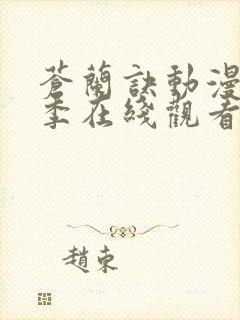 蒼蘭訣動漫
季在綫觀看
趙東